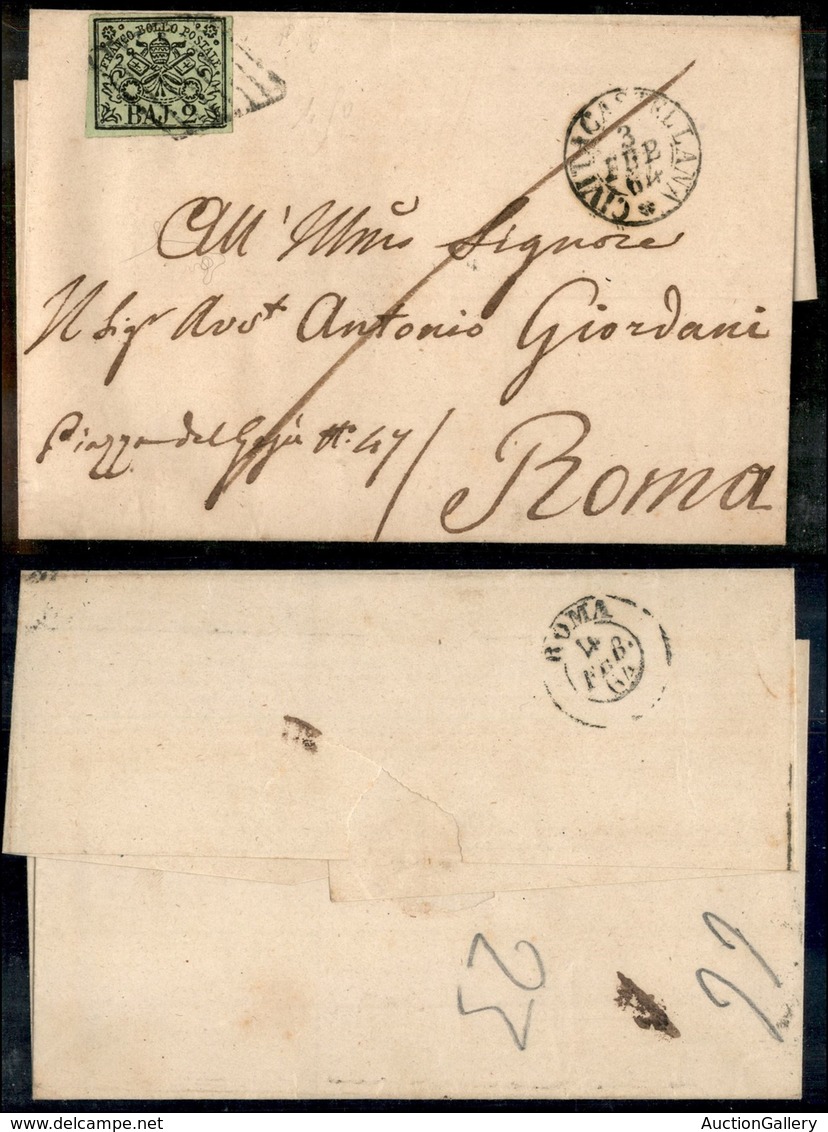 FRANCO BOLLO POSTALE
BAJ. 2
CIVITACASTELLANA
3
FEB
64
All' Illmo Signore
Il Sigr Avvt Antonio Giordani
Piazza del Gesù No. 47 / Roma
ROMA
4
FEB.
64
25
22
www.AuctionGallery